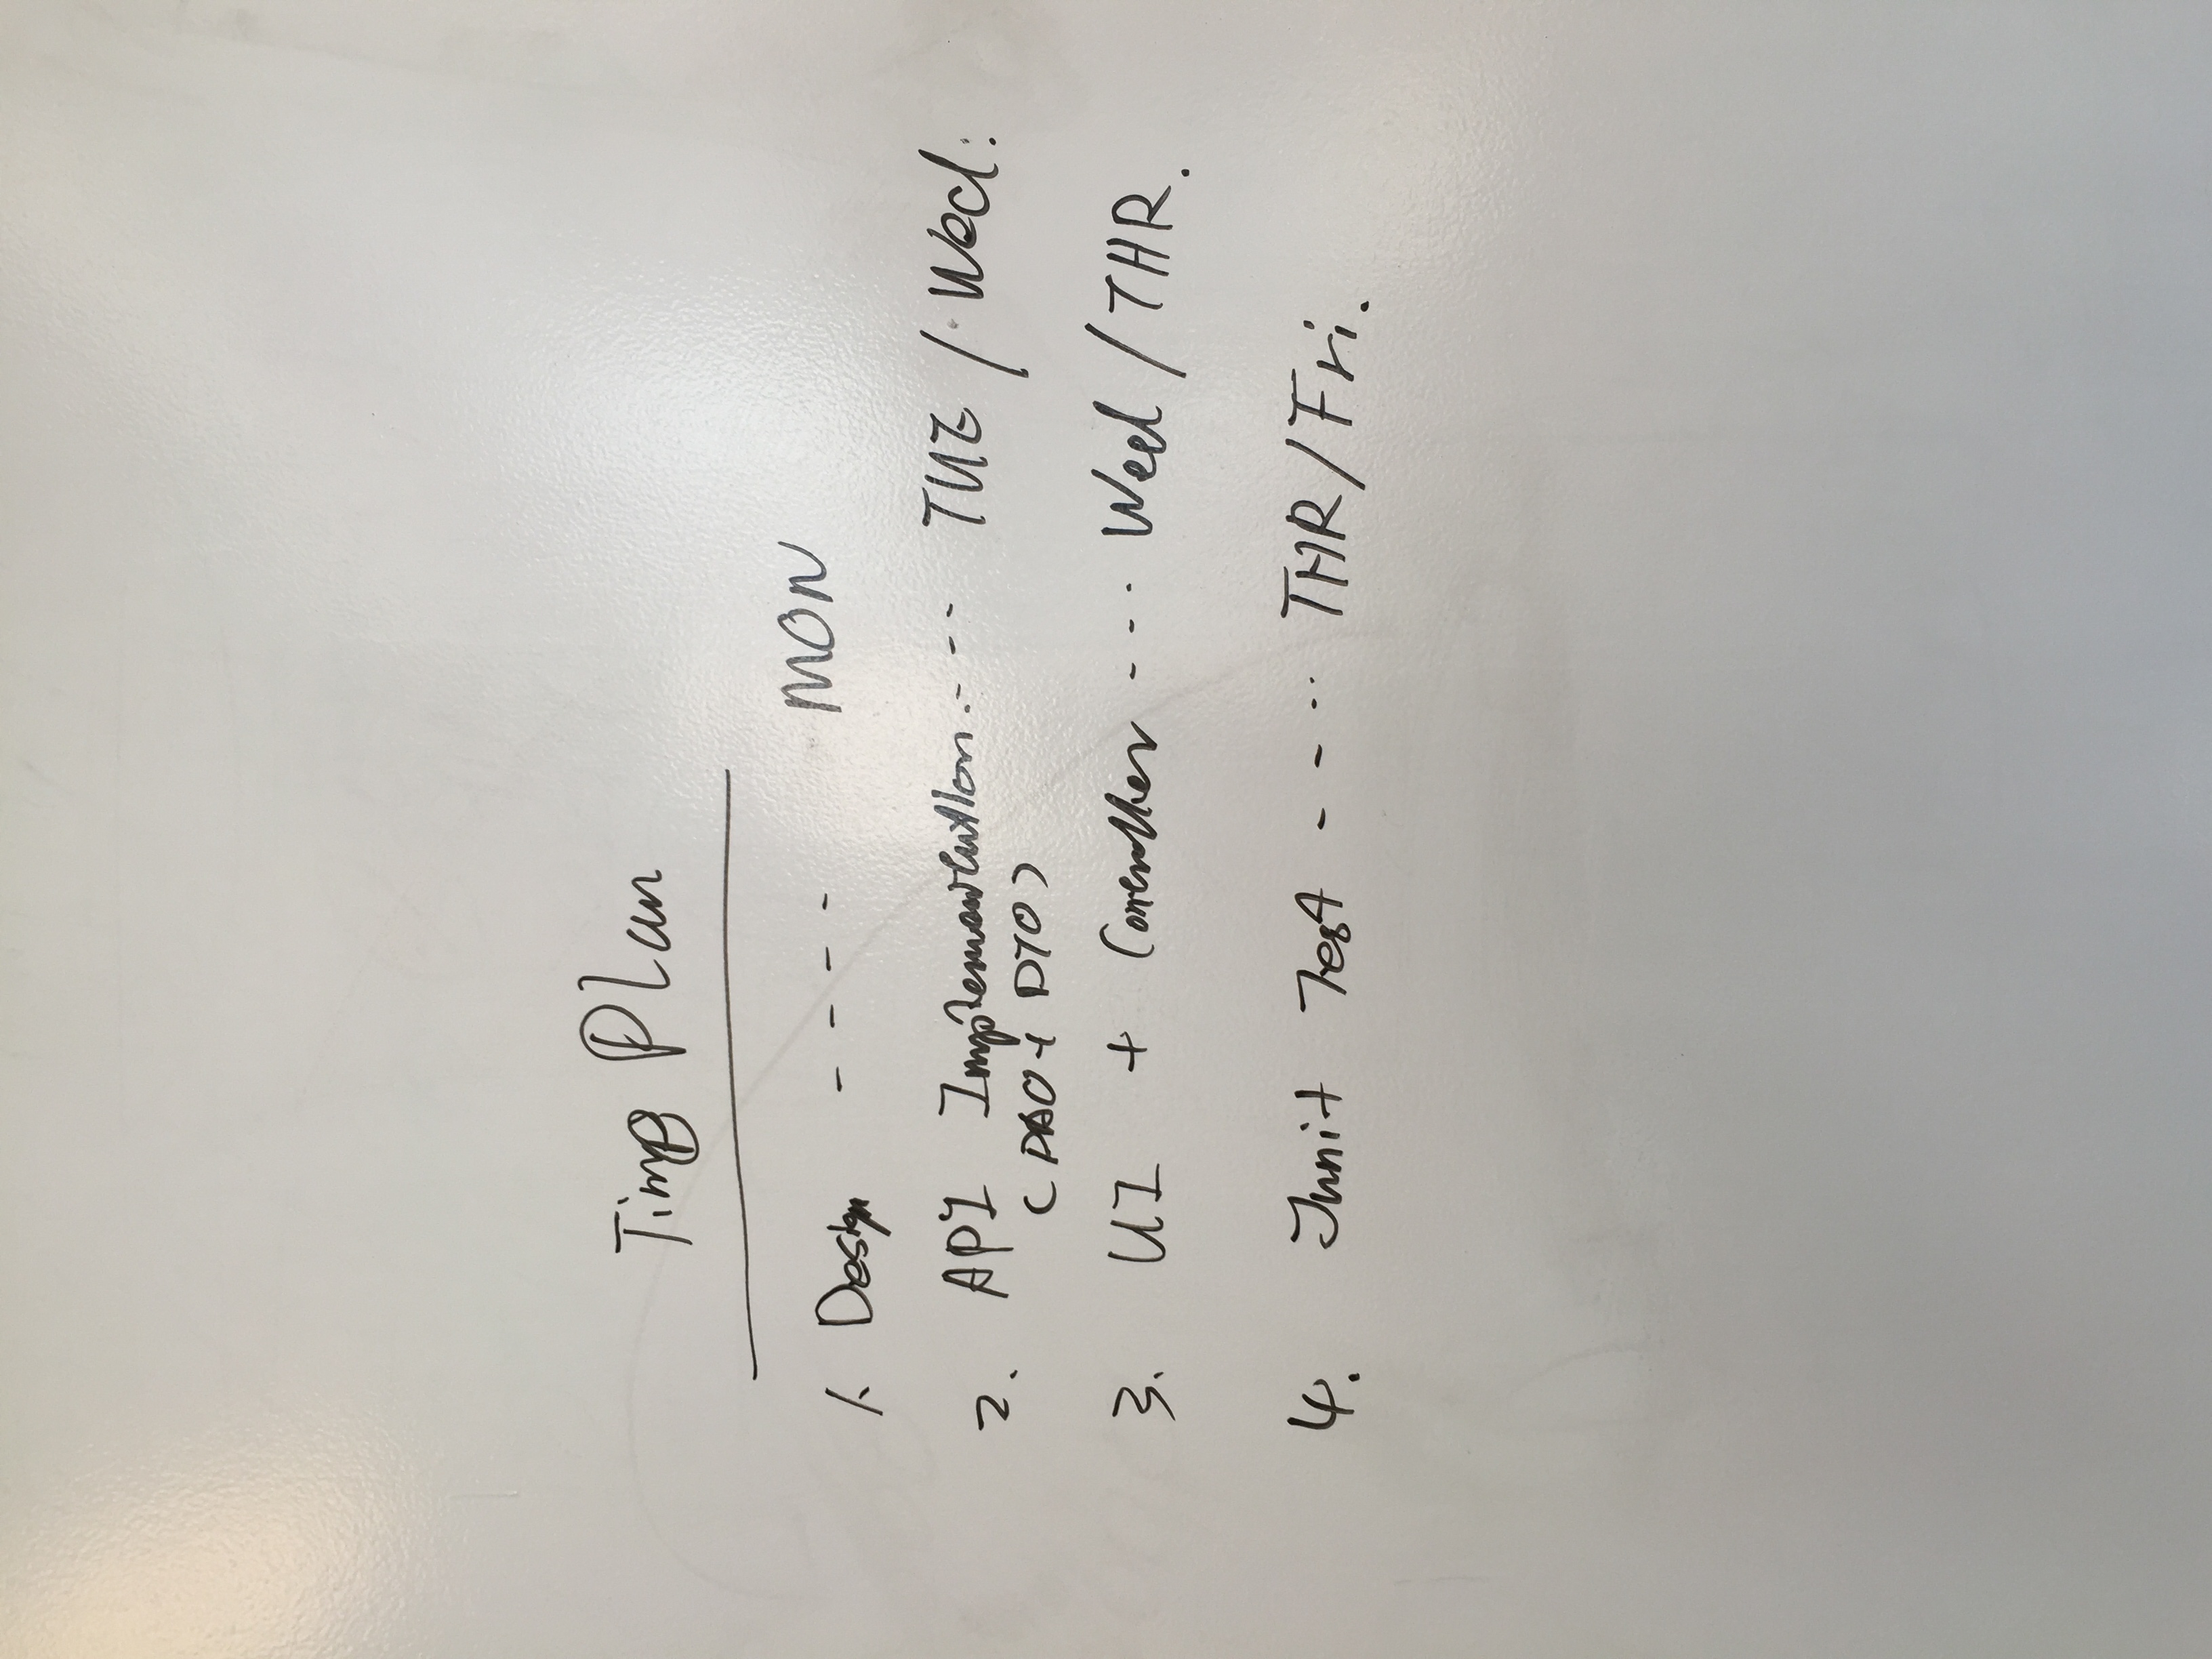 Time Plan
1. Design ---- MON
2. API Implementation --- TUE / Wed.
(DAO + DTO)
3. UI + Controller --- Wed / THR.
4. Junit Test ---- THR/Fri.